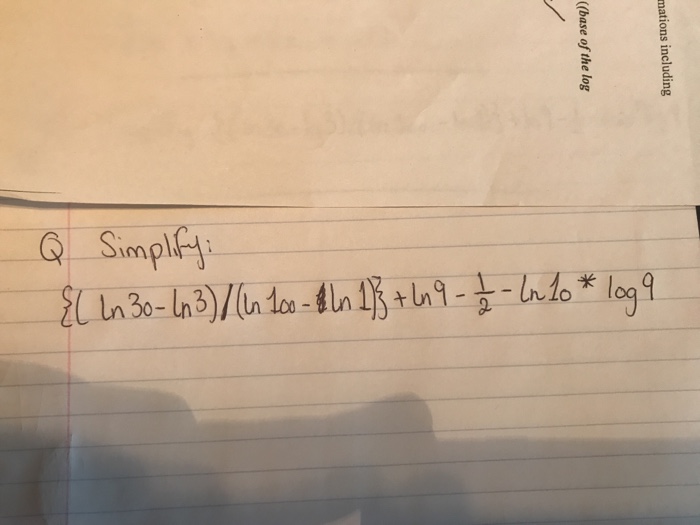 mations including
((base of the log
Q Simplify:
{( ln 30 - ln 3) / (ln 100 - ln 1)} + ln 9 - 1/2 - ln 10 * log 9